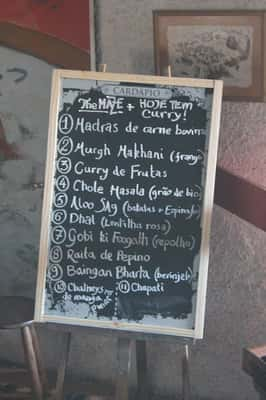 CARDÁPIO
The MAZE + HOJE TEM
Curry!
1 Madras de carne bovina
2 Murgh Makhani (frango)
3 Curry de Frutas
4 Chole Masala (grão de bico)
5 Aloo SAg (batatas e Espinafre)
6 Dhal (Lentilha rosa)
7 Gobi ki Foogath (repolho)
8 Raita de Pepino
9 Baingan Bharta (berinjela)
10 Chutneys 11 Chapati
de manga